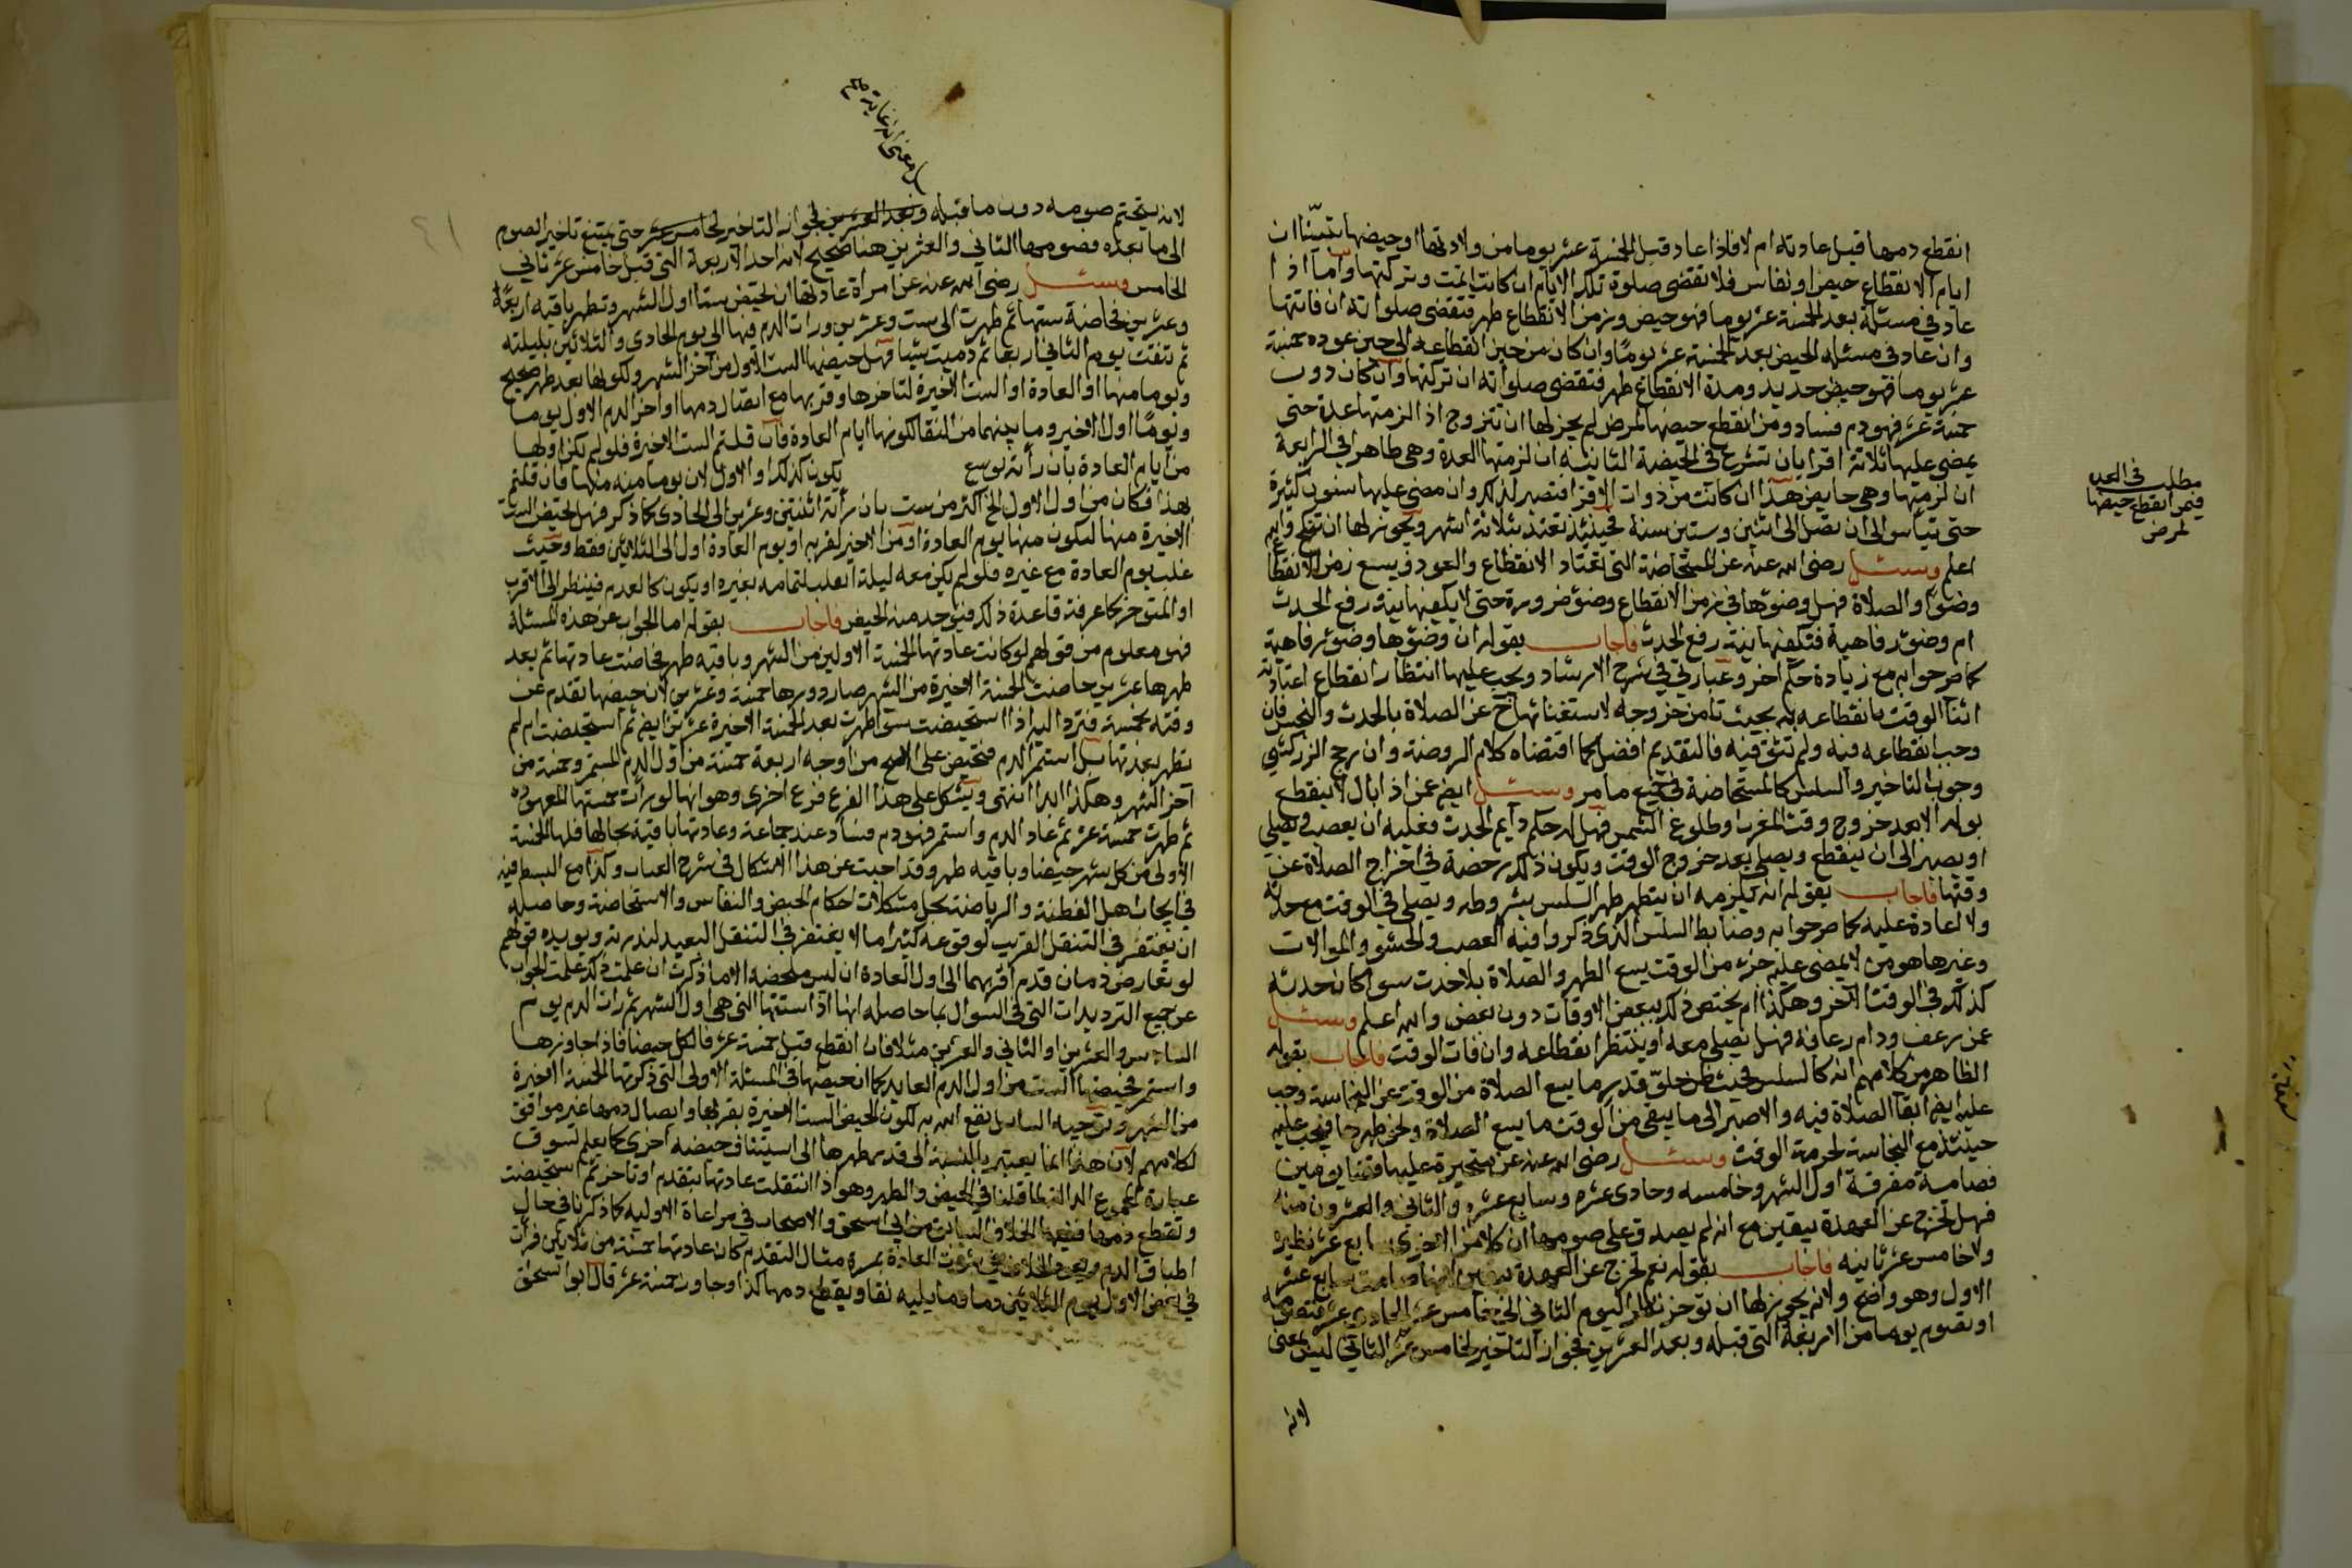 انقطع دمها قبل عادته ام لا فاذا عاد قبل الخمسة عشر يوما من ولادتها او حيضها تبيّنا ان
ايام الانقطاع حيض او نفاس فلا تقضى صلوة تلك الايام ان كانت وتركتها واما اذا
عاد في مسئلة بعد الخمسة عشر يوما فهو حيض وزمن الانقطاع طهر فتقضى صلواته ان فاتتها
وان عاد في مسئلة الحيض بعد الخمسة عشر يومًا وان كان من حين انقطاعه الى حين عوده خمسة
عشر يوما فهو حيض جديد ومدة الانقطاع طهر فتقضى صلواته ان تركتها وان كان دون
خمسة عشر فهو دم فساد ومن انقطع حيضها لمرض لم يجز لها ان تتزوج اذا لزمتها عدة حتى
يمضى عليها ثلاثة اقرا بان تشرع في الحيضة الثانية ان لزمتها العدة وهى طاهر او في الرابعة
ان لزمتها وهى حايض هذا ان كانت من ذوات الاقرا فتصبر لذلك وان مضى عليها سنون كثيرة
حتى تيأس الى ان تصل الى اثنين وستين سنة فحينئذ تعتد بثلاثة اشهر ويجوز لها ان تنكح والله
اعلم وسئل رضى الله عنه عن المستحاضة التى تعتاد الانقطاع والعود ويسع زمن الانقطاع
وضؤ والصلاة فهل وضوئها في زمن الانقطاع وضوء ضرورة حتى لا يكفيها نية رفع الحدث
ام وضوء رفاهية فتكفيها نية رفع الحدث فاجاب بقوله ان وضوءها وضوء رفاهية
كما صرحوا به مع زيادة حكم آخر وعبارتي في شرح الارشاد ويجب عليها انتظار انقطاع اعتادته
اثنا الوقت بانقطاعه به بحيث تامن خروجه لاستغنائها ح عن الصلاة بالحدث والنجس فان
وجب انقطاعه فيه ولم تثق فيه فالتقديم افضل كما اقتضاه كلام الروضة وان رجح الزركشي
وجوب التاخير والسلس كالمستحاضة في جميع ما مر وسئل ايضا عمن اذا بال لا ينقطع
بوله الا بعد خروج وقت المغرب او طلوع الشمس فهل له حكم دايم الحدث فعليه ان يعصب ويصلى
او يصبر الى ان ينقطع ويصلى بعد خروج الوقت ويكون ذلك رخصة في اخراج الصلاة عن
وقتها فاجاب بقوله انه يلزمه ان يتطهر طهر السلس بشروطه ويصلى في الوقت مع حدثه
ولا اعادة عليه كما صرحوا به وضابط السلس الذى ذكروا فيه العصب والحشو والموالات
وغيرها هو من لا يمضى عليه جزء من الوقت يسع الطهر والصلاة بلا حدث سوا كان حدثه
كذلك في الوقت الآخر وهكذا ام يختص ذلك ببعض الاوقات دون بعض والله اعلم وسئل
عمن يرعف ودام رعافه فهل يصلى معه او ينتظر انقطاعه وان فات الوقت فاجاب بقوله
الظاهر من كلامهم انه كالسلس فحيث ظن خلوّ قدر ما يسع الصلاة من الوقت عن النجاسة وجب
عليه ايضا ايقا الصلاة فيه والا صبر الى ما يبقى من الوقت ما يسع الصلاة فيجب عليه
حينئذ مع النجاسة لحرمة الوقت وسئل رضى الله عنه عن متحيرة عليها قضا يومين
فصامته متفرقة اول الشهر وخامسه وحادى عشره وسابع عشره والثانى والعشرون منه
فهل تخرج عن العهدة بيقين مع انه لم يصدق على صومها ان كلا من الاخرى سابع عشر نظيره
ولا خامس عشر ثانيه فاجاب بقوله نعم تخرج عن العهدة سابع عشر
الاول وهو واضح ولانه يجوز لها ان توخر نظير اليوم الثاني الى خامس عشر الحادى عشر
او تصوم يوما من الاربعة التى قبله وبعد العشرين فجواز التاخير لخامس عشر الثاني ليس بمعنى
لانه
مطلب في العدد
فيمن انقطع حيضها
لمرض
بل معنى انه غايته صح
لانه يتحتم صومه دون ما قبله وبعد العشرين فجواز التاخير لخامس عشر حتى يمتنع تاخير الصوم
الى ما بعده فصومها الثاني والعشرين هنا صحيح لانه احد الاربعة التى قبل خامس عشر ثاني
الخامس وسئل رضى الله عنه عن امراة عادتها ان تحيض ستا اول الشهر وتطهر باقيه اربعًا
وعشرين فحاضت ستها ثم طهرت الى ست وعشرين ورات الدم فيها الى يوم الحادى والثلاثين بليلته
ثم تنقت يوم الثاني اربعا ثم دميت شيا فهل حيضها الست الاول من آخر الشهر ولكونها بعد طهر صحيح
ويوما منها او العادة او الست الاخيرة لتاخرها وقربها مع اتصال دمها او آخر الدم الاول يوما
ويومًا اول الاخير وما بينهما من النقا لكونها ايام العادة فان قلتم الست الاخيرة فلو لم تكن اولها
من ايام العادة بان رأته يوسع يكون كذلك او الاول لان يوما منه منها فان قلتم
بهذا فكان من اول الاول اكثر من ست بان رأته اثنتين وعشرين الى الحادى كما ذكر فهل الحيض الست
الاخيرة منها ليكون منها يوم العادة او من الاخير لقربه او يوم العادة اول الى الثلاثين فقط وحيث
غلب يوم العادة مع غيره فلو لم يكن معه ليلة ايغلب لتمامه بغيره او يكون كالعدم فينظر الى الاقرب
او المتوخر كما عرفت قاعدة ذلك فيوخذ منه الحيض فاجاب بقوله اما الجواب عن هذه المسئلة
فهو معلوم من قولهم لو كانت عادتها الخمسة الاولين من الشهر وباقيه طهر فحاضت عادتها ثم بعد
طهرها عشرين حاضت الخمسة الاخيرة من الشهر صار دورها خمسة وعشرين لان حيضها تقدم عن
وقته بخمسة فترد اليه اذا استحيضت سوا طهرت بعد الخمسة الاخيرة عشرين ايضا ثم استحيضت ام لم
تطهر بعدتها بل استمر الدم فتحيض على الاصح من اوجه اربعة خمسة من اول الدم المستمر وخمسة من
آخر الشهر وهكذا ابدا انتهى ويشكل على هذا الفرع فرع اخرى وهو انها لو رأت خمستها المعهودة
ثم طهرت خمسة عشر ثم عاد الدم واستمر فهو دم فساد عند جماعة وعادتها باقية بحالها فلها الخمسة
الاولى من كل شهر حيضا وباقيه طهر وقد اجبت عن هذا الاشكال في شرح العباب وكذا مع البسط فيه
في اتحاف اهل الفطنة والرياضة بحل مشكلات احكام الحيض والنفاس والاستحاضة وحاصله
ان يغتفر في التنقل القريب لوقوعه كثيرا ما لا يغتفر في التنقل البعيد لندرته ويويده قولهم
لو تعارض دمان قدم اقربهما الى اول العادة ان ليس ملحظه الا ما ذكرت ان علمت ذلك علمت الجواب
عن جميع الترديدات التى في السوال بما حاصله انها اذا استنتها التى هى اول الشهر ثم رات الدم يوم
السادس والعشرين او الثاني والعشرين مثلا فان انقطع قبل خمسة عشر فالكل حيض فاذا جاوزها
واستمر فحيضها الست من اول الدم العايد كما ان حيضها في المسئلة الاولى التى ذكرتها الخمسة الاخيرة
من الشهر وتوجيه السائل نفع الله به لكون الحيض الست الاخيرة بقربها وايصال دمها غير موافق
لكلامهم لان هذا انما يعتبر بالنسبة الى قدر طهرها الى استيناف حيضه اخرى كما يعلم لسوق
عبارة المجموع الدالة لما قلنا في الحيض والطهر وهو اذا انتقلت عادتها بتقدم او تاخر ثم استحيضت
وتقطع دمها ففيها الخلاف الثابت من ابي اسحق والاصحاب في مراعاة الاولية كما ذكرنا في حال
اطباق الدم ويجى الخلاف في ثبوت العادة بمرة مثال التقدم كان عادتها خمسة من ثلاثين فرأت
في بعض الاول يوم الثلاثين دما وما يليه نقا ويقطع دمها كذا وجاوز خمسة عشر قال ابو اسحق